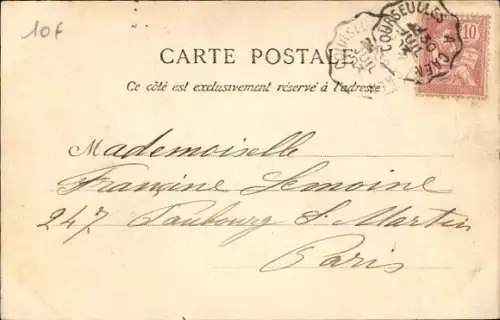 10f
COURSEULLES A CAEN
10
CARTE POSTALE
Ce côté est exclusivement réservé à l'adresse
Mademoiselle
Francine Lemoine
247 Faubourg St Martin
Paris